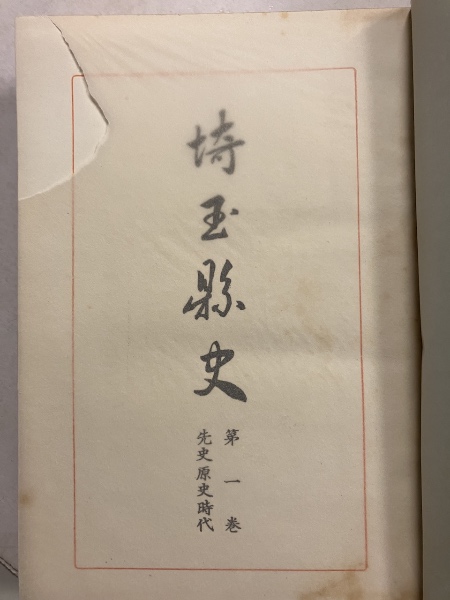 埼玉縣史
第一巻
先史原史時代